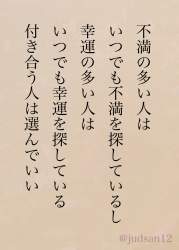 不満の多い人は
いつでも不満を探しているし
幸運の多い人は
いつでも幸運を探している
付き合う人は選んでいい
@judsan12